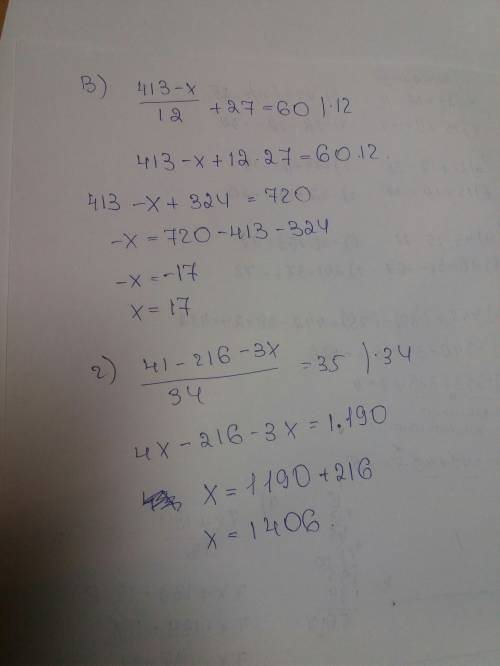 В) (413-x)/12 + 27 = 60 | · 12
413 - x + 12 · 27 = 60 · 12.
413 - x + 324 = 720
-x = 720 - 413 - 324
-x = -17
x = 17
г) (41 - 216 - 3x)/34 = 35 | · 34
4x - 216 - 3x = 1.190
x = 1190 + 216
x = 1406.